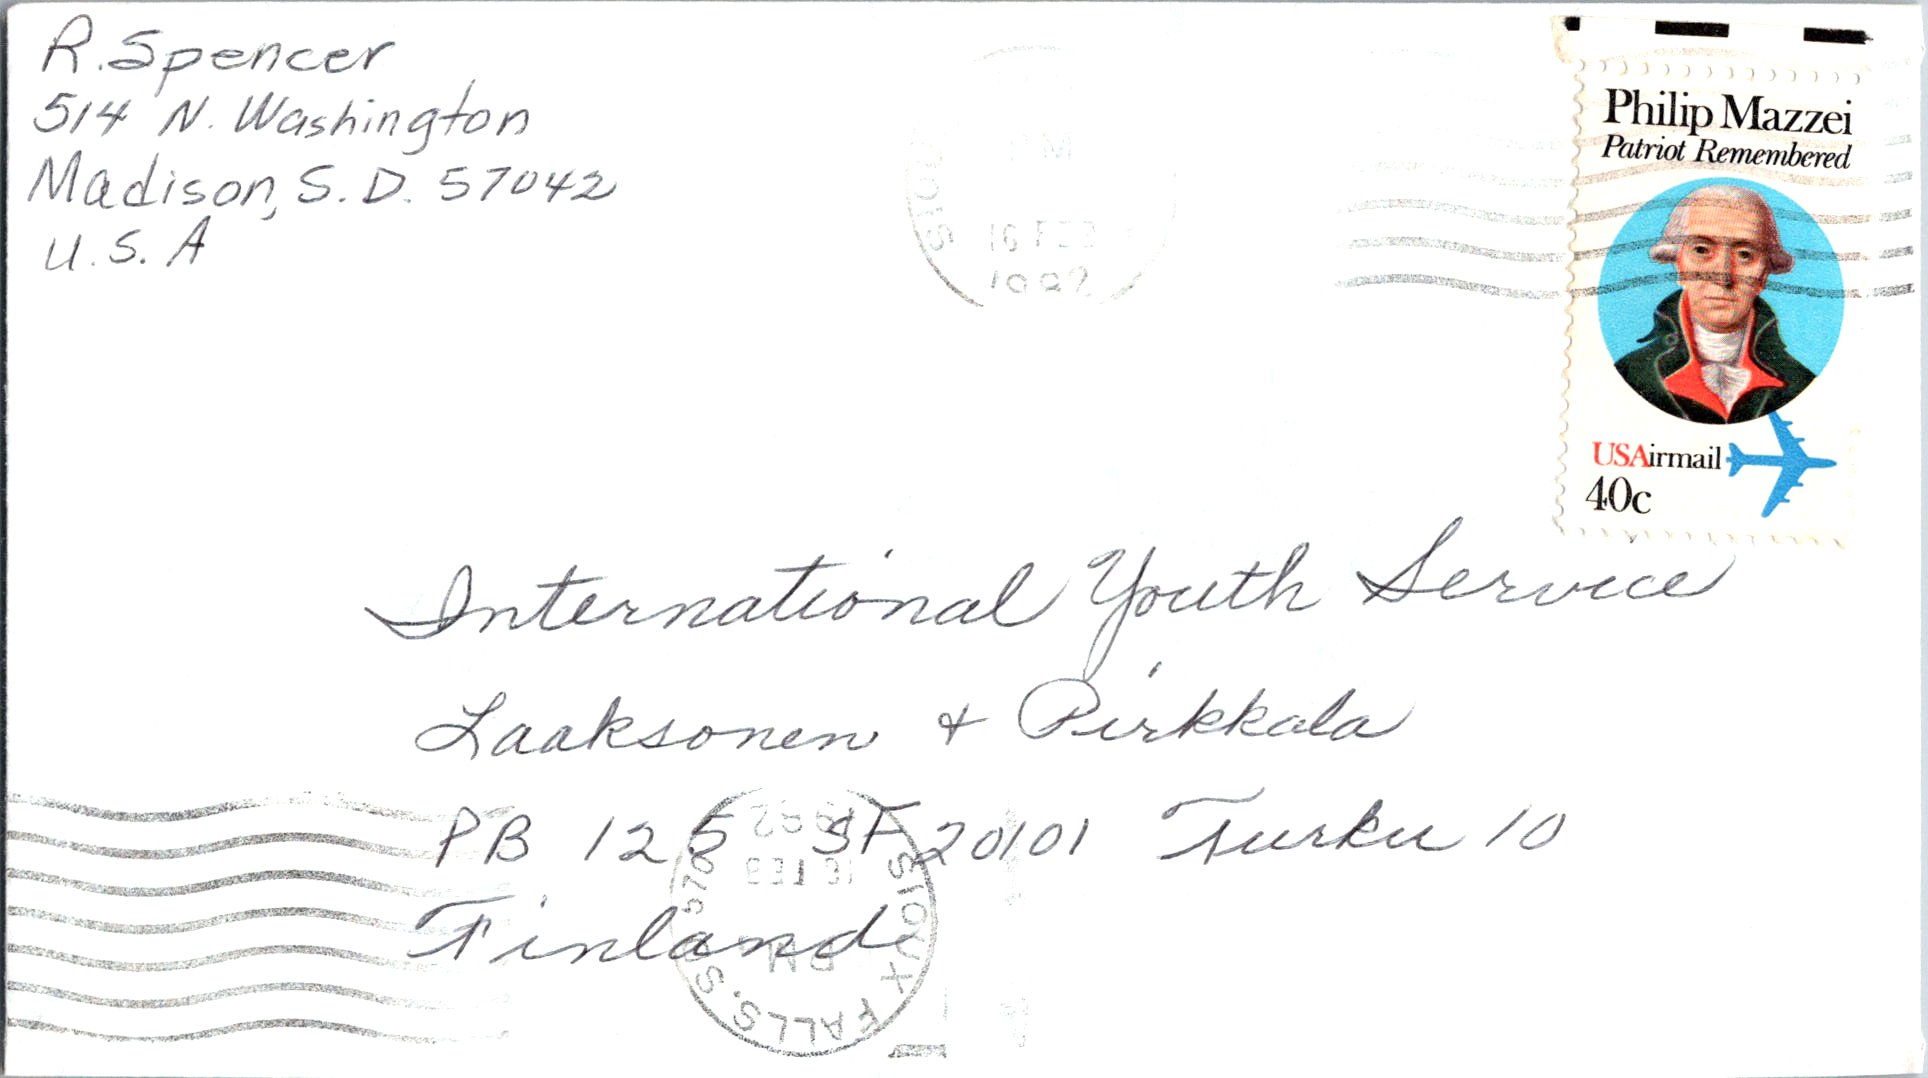 R. Spencer
514 N. Washington
Madison, S.D. 57042
U.S.A
16 FEB
1982
Philip Mazzei
Patriot Remembered
USAirmail
40c
International Youth Service
Laaksonen + Pirkkala
PB 125 SF 20101 Turku 10
Finland
SIOUX FALLS, S
570
PM
16 FEB
1982